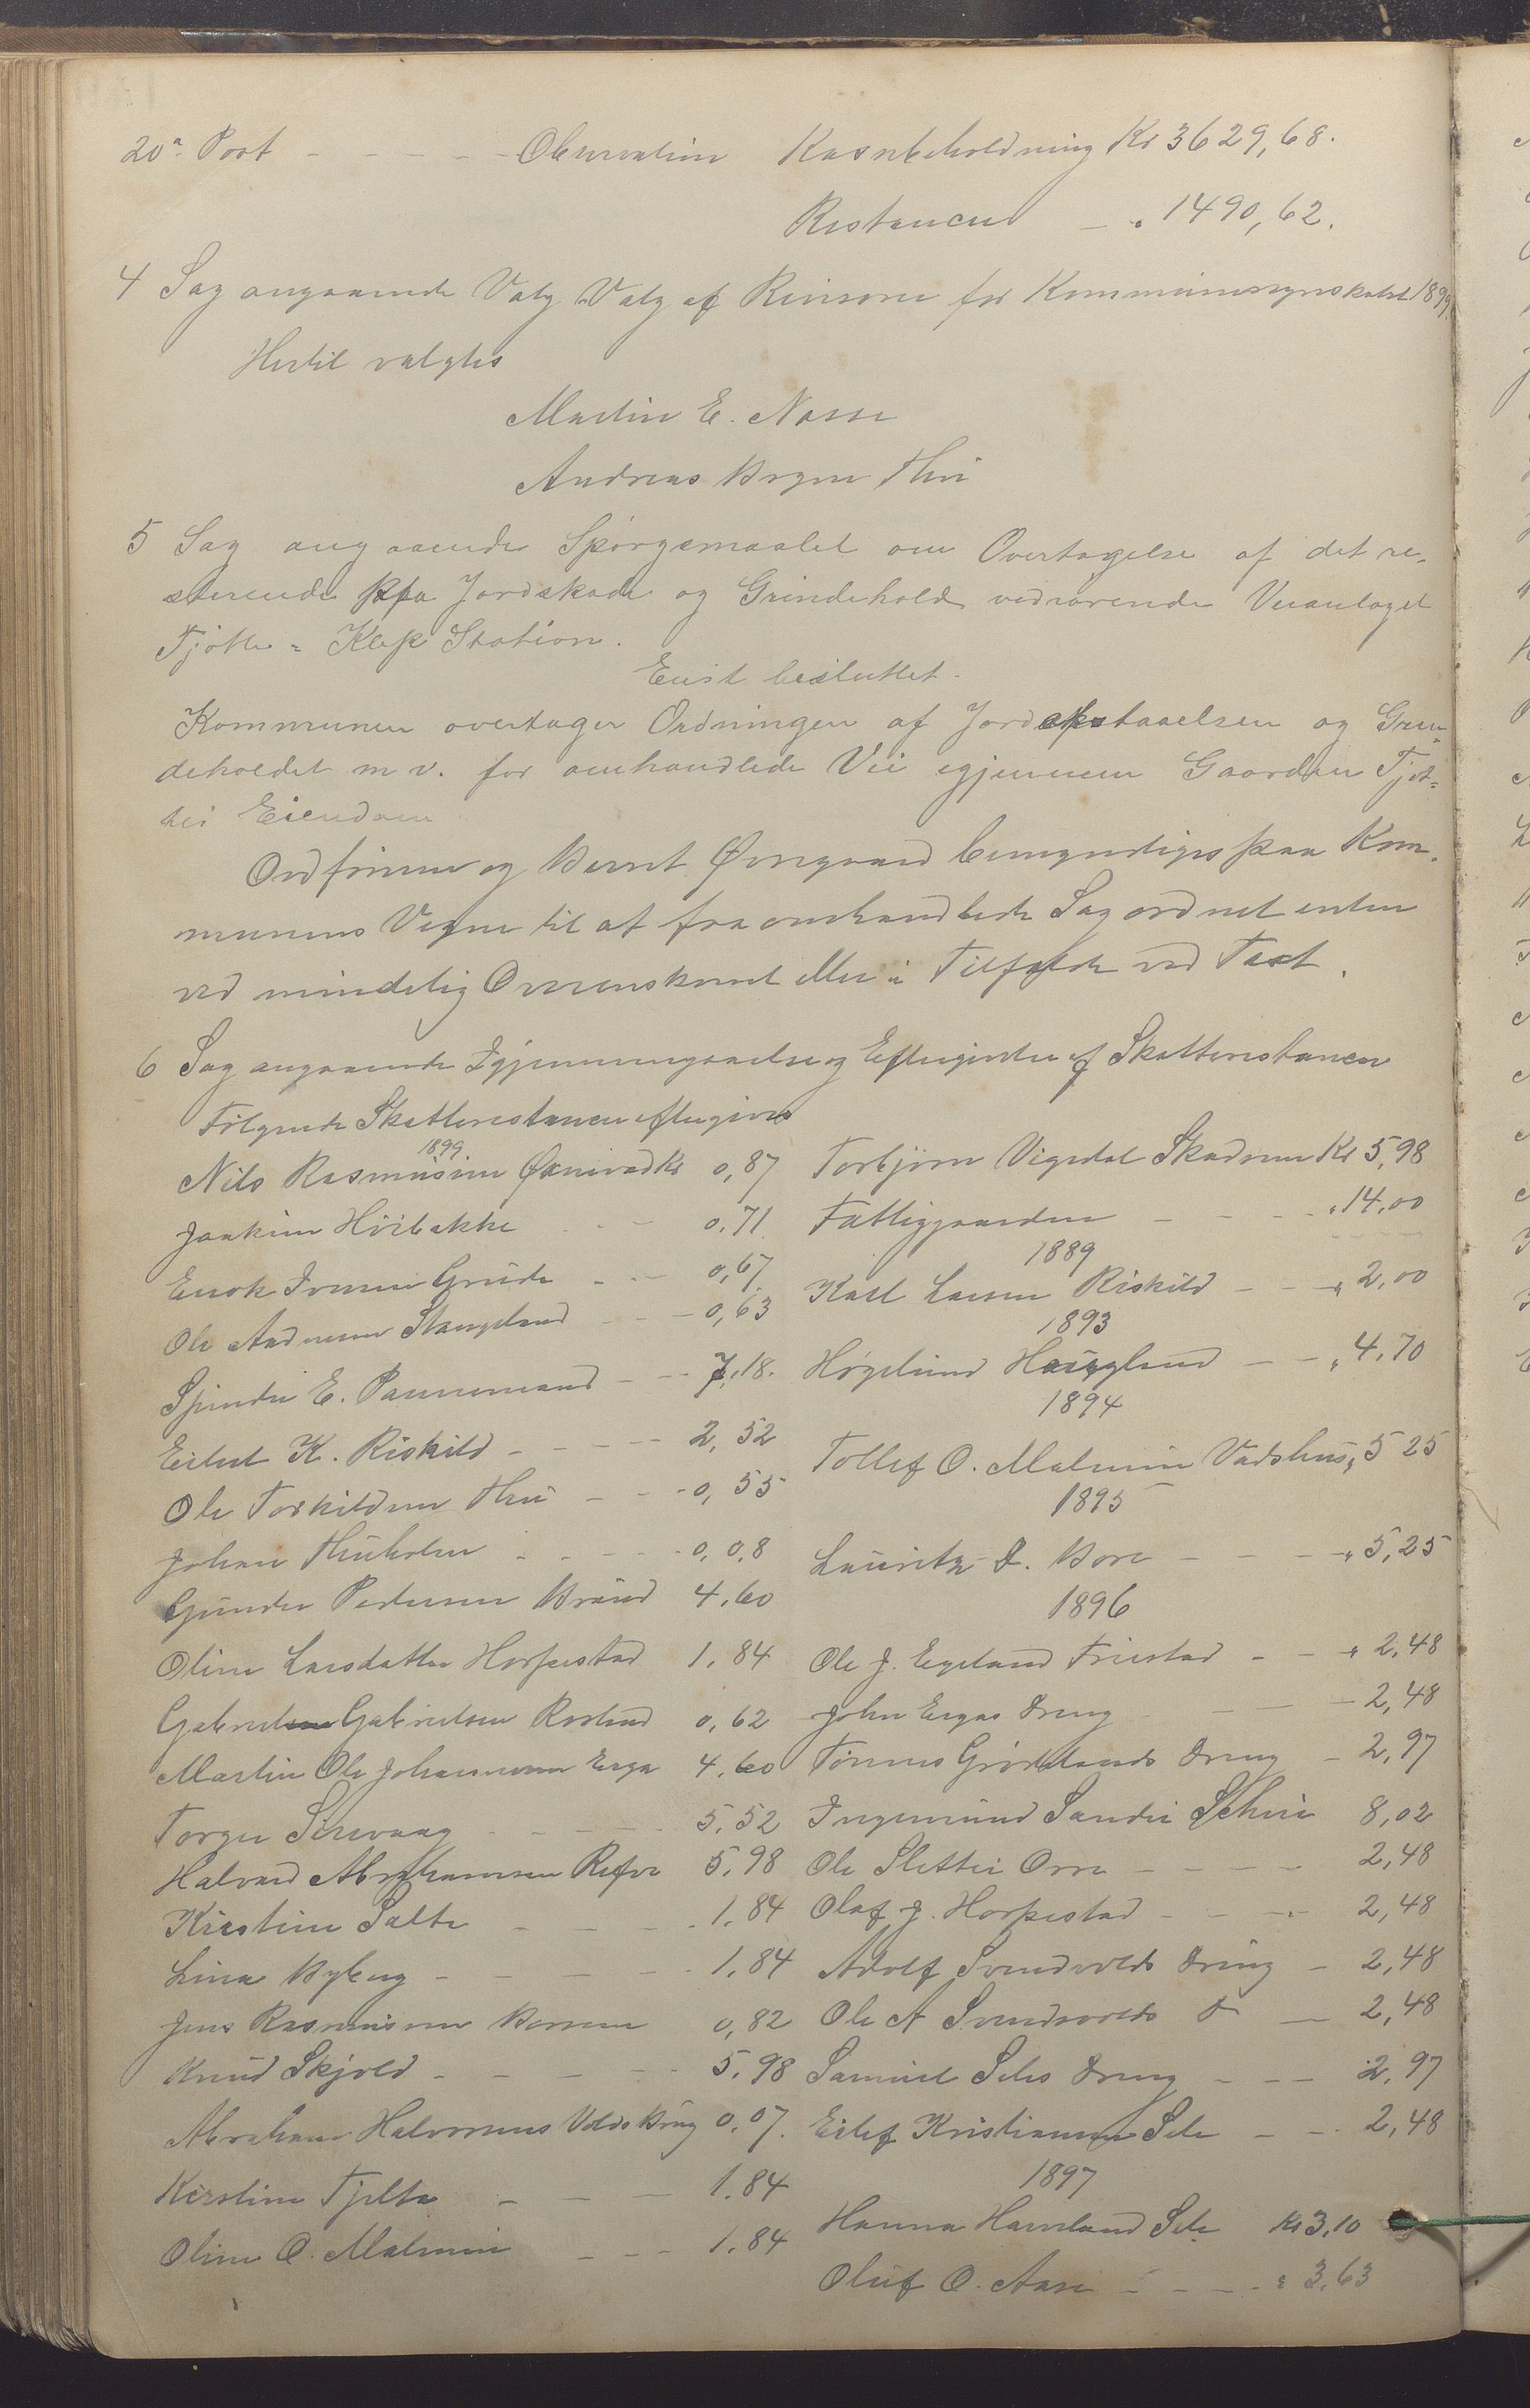 20de Post - - - - - Observation Kassebeholdning Kr 3629,68.
Restancer - „ 1490,62.
4 Sag angaaende Valg Valg af Revisorer for Kommuneregnskabet 1899.
Hertil valgtes
Martin E. Nasse
Andreas Bryne Thu
5 Sag angaaende Spørgsmaalet om Overtagelse af det re-
sterende ppa Jordskade og Grindehold vedrørende Veianlæget
Tjøtte - Klep Station.
Enst besluttet.
Kommunen overtager Ordningen af Jordafstaaelsen og Grin-
deholdet m v. for omhandlede Vei igjennem Gaarden Tjøt-
tes Eiendom
Ordføreren og Bernt Øvregaard bemyndiges paa Kom-
munens Vegne til at faa omhandlede Sag ordnet enten
ved mindelig Overenskomst eller i Tilfælde ved Taxt.
6 Sag angaaende Igjennemgaaelse og Eftergivelse af Skatterestancer
Følgende Skatterestancer eftergives
1899
Nils Rasmussen Øxnevad Kr 0,87
Joakim Höibakke - - 0,71
Enok Iversen Grude - - - 0,67.
Ole Andersen Stangeland - - - 0,63
E. Pannemand - - - 7,18.
Eilert K. Riskild - - - - 2,52
Ole Torkildsen Thu - - - 0,55
Johan Thuholen - - - - 0,0,8
Gunder Pedersen Braud 4,60
Oline Larsdatter Horpestad 1,84
Gabrielsen Gabrielsen Rosland 0,62
Martin Ole Johannesen Erga 4,60
Torger Serevaag - - - - 5,52
Halvard Abrahamsen Refve 5,98
Kirstine Salte - - - - 1,84
Lina Byberg - - - - - 1,84
Jens Rasmussen Borsen 0,82
Knud Skjold - - - - - 5,98
Abraham Halvorsens Volds Brug 0,07.
Kirstine Tjelta - - - 1.84
Oline O. Malmin - - - 1.84
Torbjørn Vigedal Skadsem Kr 5,98
Fattiggaarden - - - - „ 14,00
1889
Karl Larsen Riskild - - „ 2,00
1893
Høgelund Haugland - - „ 4,70
1894
Tollef O. Malmin Vadshus „ 5 25
1895
Lauritz D. Bore - - - „ 5,25
1896
Ole J. Egeland Friestad - - „ 2,48
John Ergas Dreng - - - 2,48
Tønnes Grødelands Dreng - 2,97
Ingemund Sandei 8,02
Ole Slettei Orre - - - - 2,48
Olaf J. Horpestad - - - 2,48
Adolf Svendsvolds Dreng - 2,48
Ole A Svendsvolds D - 2,48
Samuel Seles Dreng - - - 2,97
Eilef Kristiansen Sele - - 2,48
1897
Hanna Hauland Sele Kr 3,10
Oluf O. Aase - - - - „ 3,63